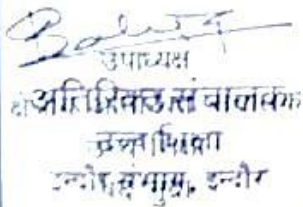 उपाध्यक्ष
अतिरिक्त संचालक
उच्च शिक्षा
इन्दौर संभाग, इन्दौर